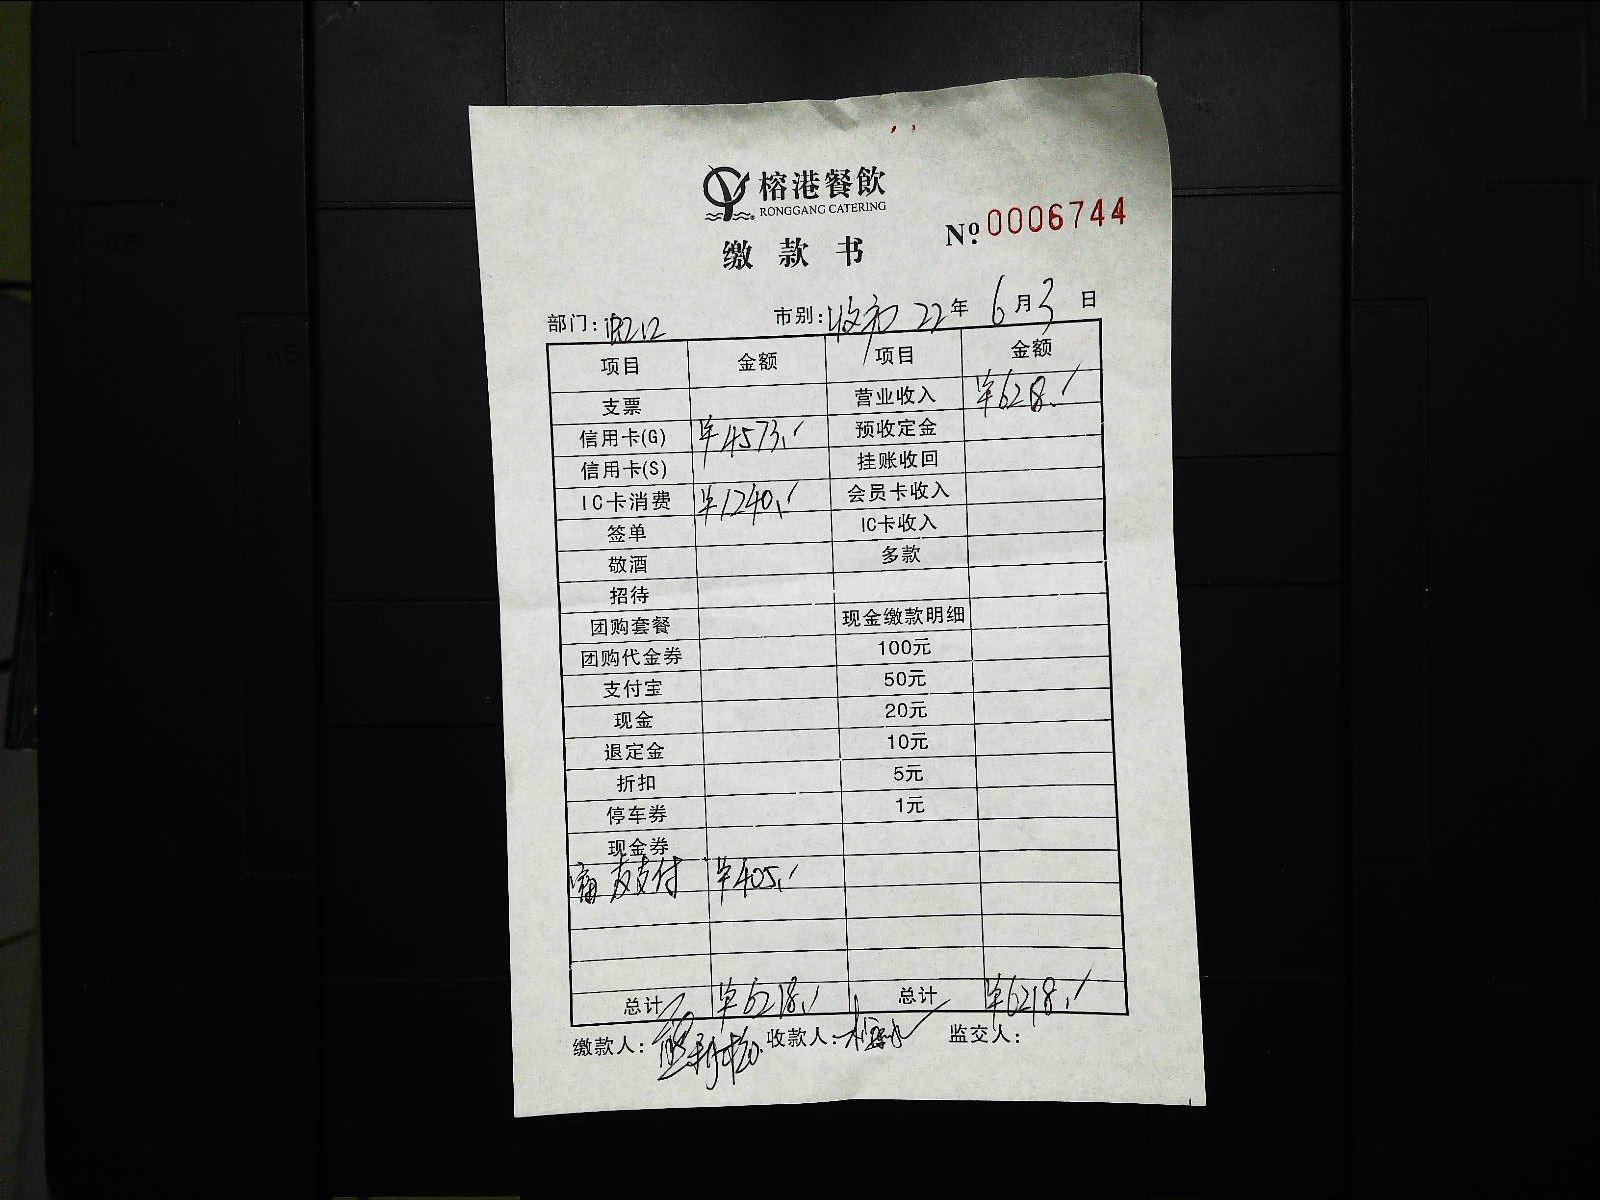 榕港餐飲
RONGGANG CATERING
缴款书
Nº 0006744
部门: 市别: 22年6月3日
项目 金额 项目 金额
支票 营业收入 ¥6218.
信用卡(G) ¥4573. 预收定金
信用卡(S) 挂账收回
IC卡消费 ¥1240. 会员卡收入
签单 IC卡收入
敬酒 多款
招待
团购套餐 现金缴款明细
团购代金券 100元
支付宝 50元
现金 20元
退定金 10元
折扣 5元
停车券 1元
现金券
支付 ¥405.
总计 ¥6218. 总计 ¥6218.
缴款人: 收款人: 监交人: